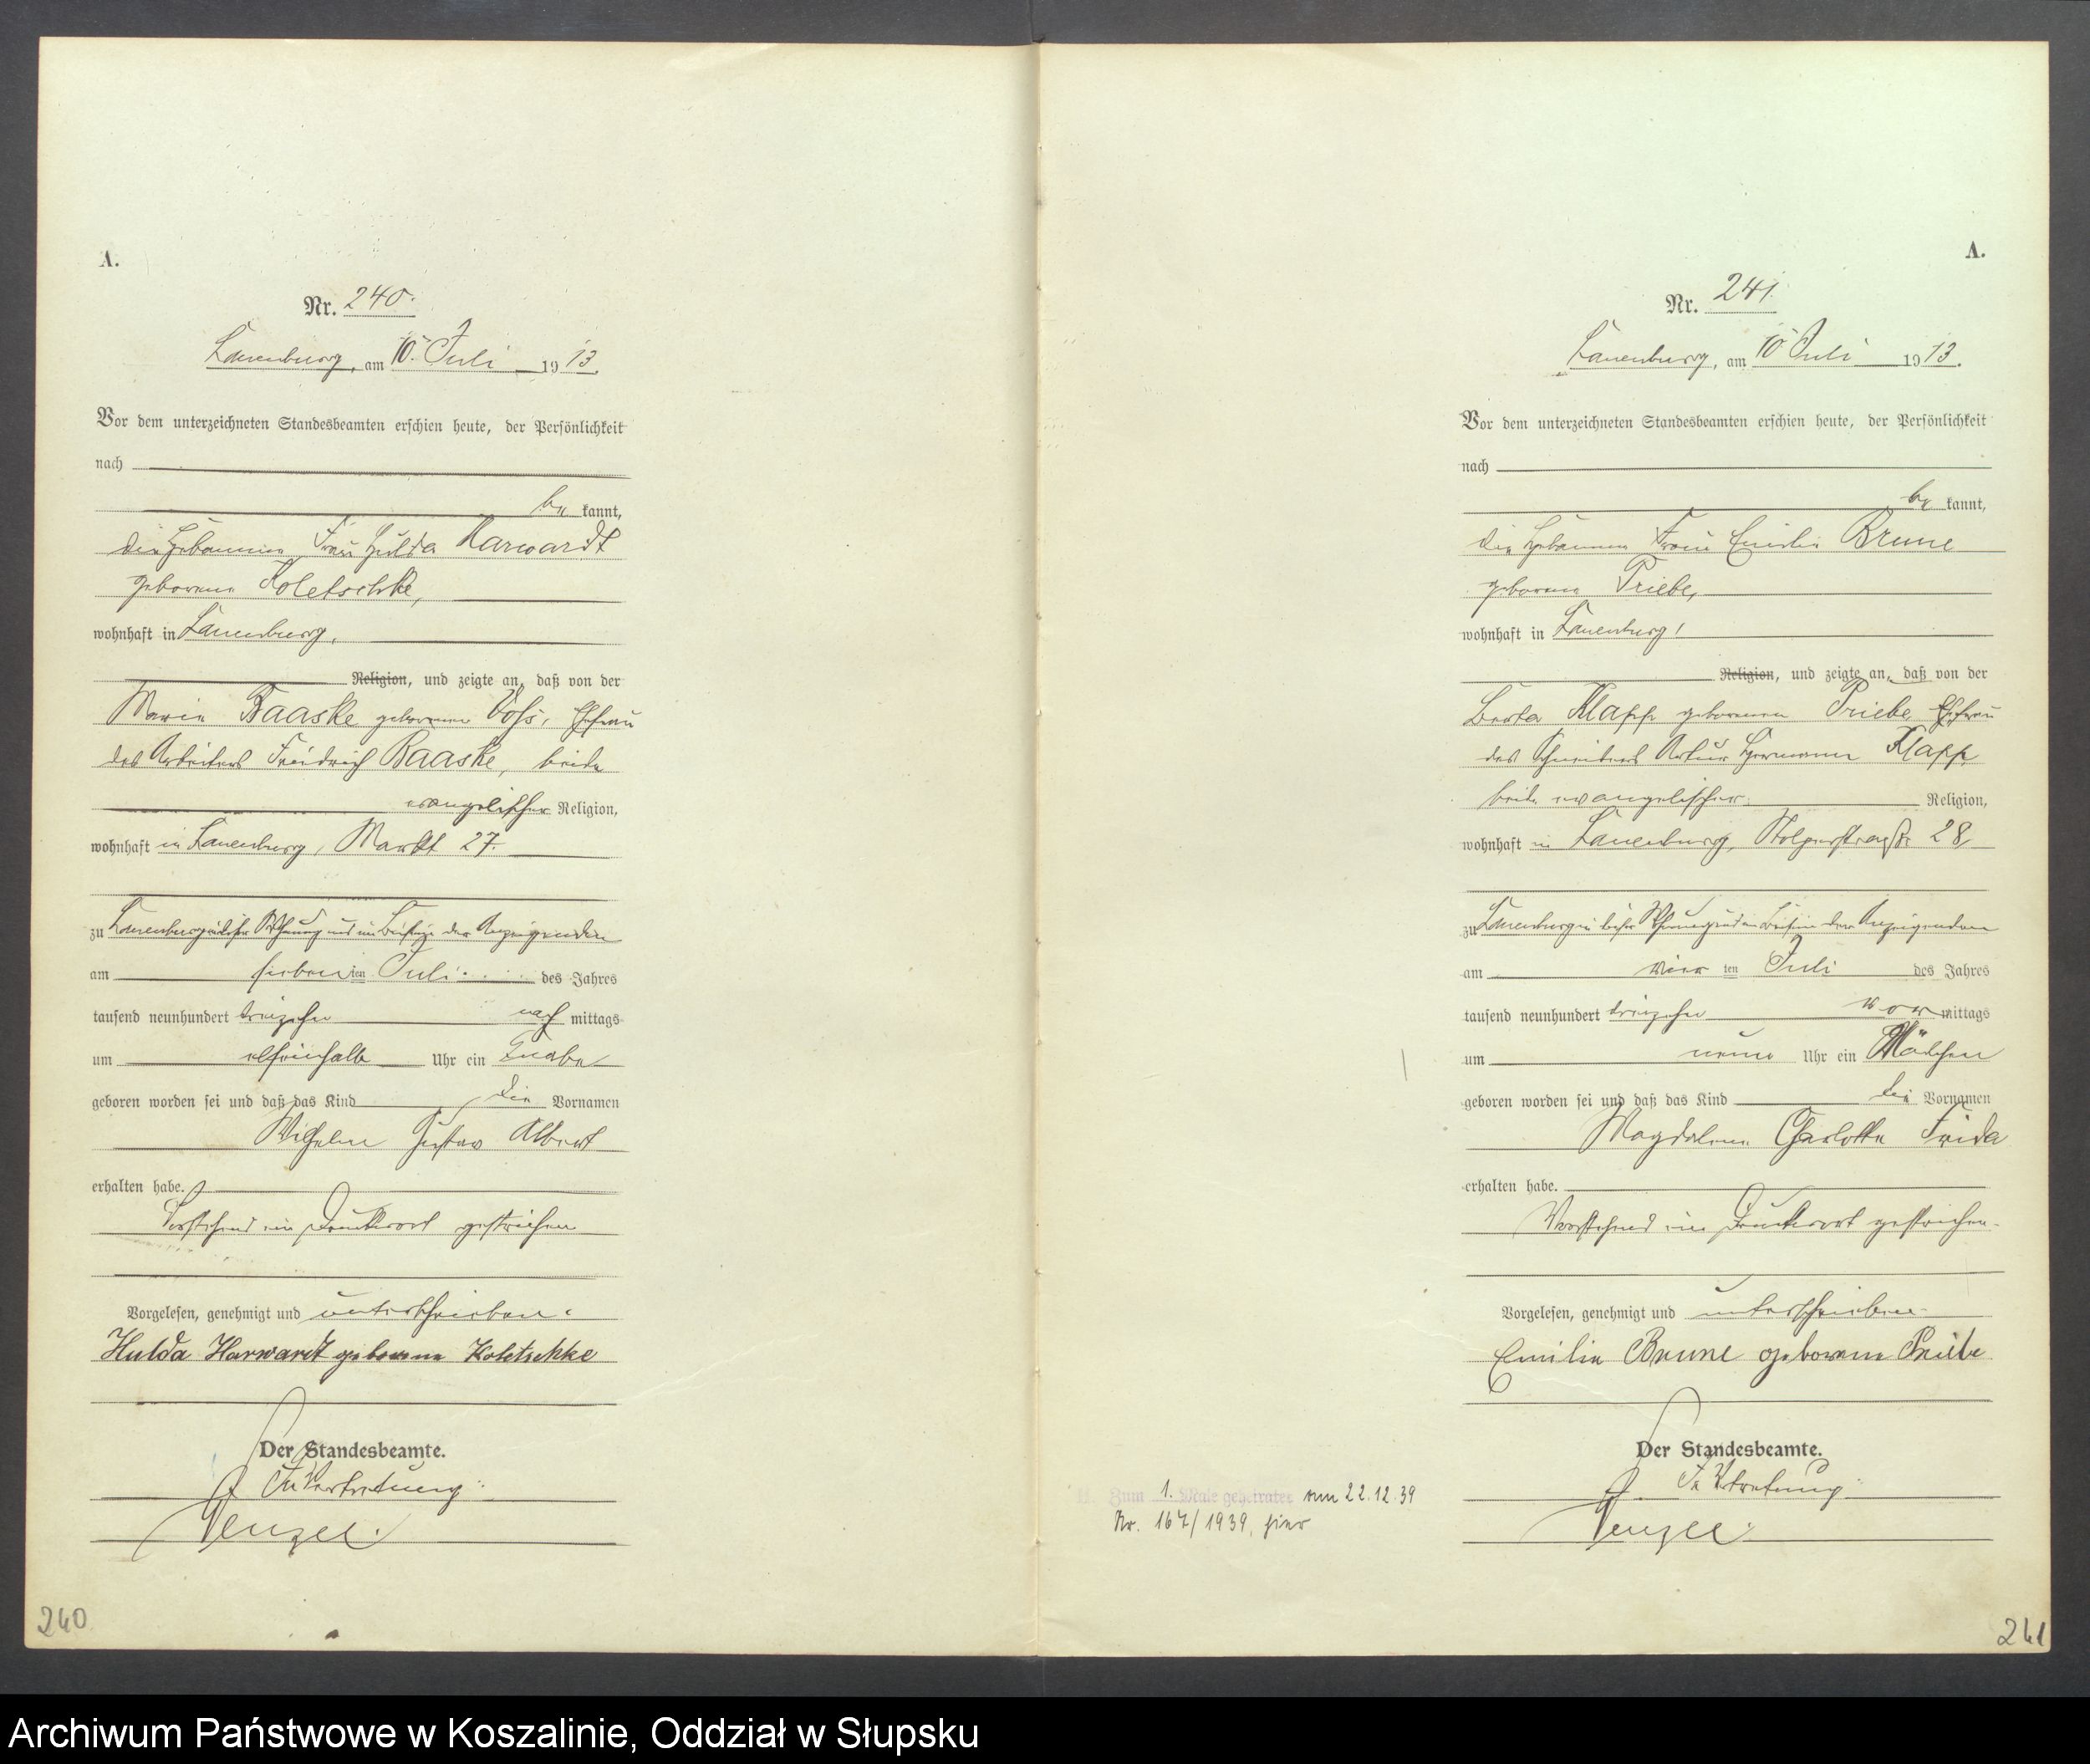 A.
Nr. 240.
Lauenburg, am 10. Juli 1913.
Vor dem unterzeichneten Standesbeamten erschien heute, der Persönlichkeit
nach
be kannt,
die Hebamme Frau Hulda Harwardt
geborene Koletschke,
wohnhaft in Lauenburg,
Religion, und zeigte an, daß von der
Marie Baaske geborenen Voß, Ehefrau
des Arbeiters Friedrich Baaske, beide
evangelischer Religion,
wohnhaft in Lauenburg, Markt 27.
zu Lauenburg in dieser Wohnung und im Beisein der Anzeigenden
am siebenten Juli des Jahres
tausend neunhundert dreizehn nach mittags
um elfeinhalb Uhr ein Knabe
geboren worden sei und daß das Kind die Vornamen
Wilhelm Gustav Albert
erhalten habe.
Vorstehend ein Druckwort gestrichen
Vorgelesen, genehmigt und unterschrieben.
Hulda Harwardt geborene Koletschke
Der Standesbeamte.
In Vertretung:
Wenzel.
240
A.
Nr. 241.
Lauenburg, am 10. Juli 1913.
Vor dem unterzeichneten Standesbeamten erschien heute, der Persönlichkeit
nach
be kannt,
die Hebamme Frau Emilie Brune
geborene Priebe,
wohnhaft in Lauenburg,
Religion, und zeigte an, daß von der
Berta Klapp geborenen Priebe, Ehefrau
des Schreibers Artur Hermann Klapp,
beide evangelischer Religion,
wohnhaft in Lauenburg, Stolperstraße 28,
zu Lauenburg in dieser Wohnung und im Beisein der Anzeigenden
am vier ten Juli des Jahres
tausend neunhundert dreizehn vor mittags
um neun Uhr ein Mädchen
geboren worden sei und daß das Kind die Vornamen
Magdalena Charlotte Frida
erhalten habe.
Vorstehend ein Druckwort gestrichen.
Vorgelesen, genehmigt und unterschrieben.
Emilie Brune geborene Priebe
Der Standesbeamte.
In Vertretung:
Wenzel.
Zum 1. Male geheiratet am 22.12.39
Nr. 167/1939, hier
241
Archiwum Państwowe w Koszalinie, Oddział w Słupsku